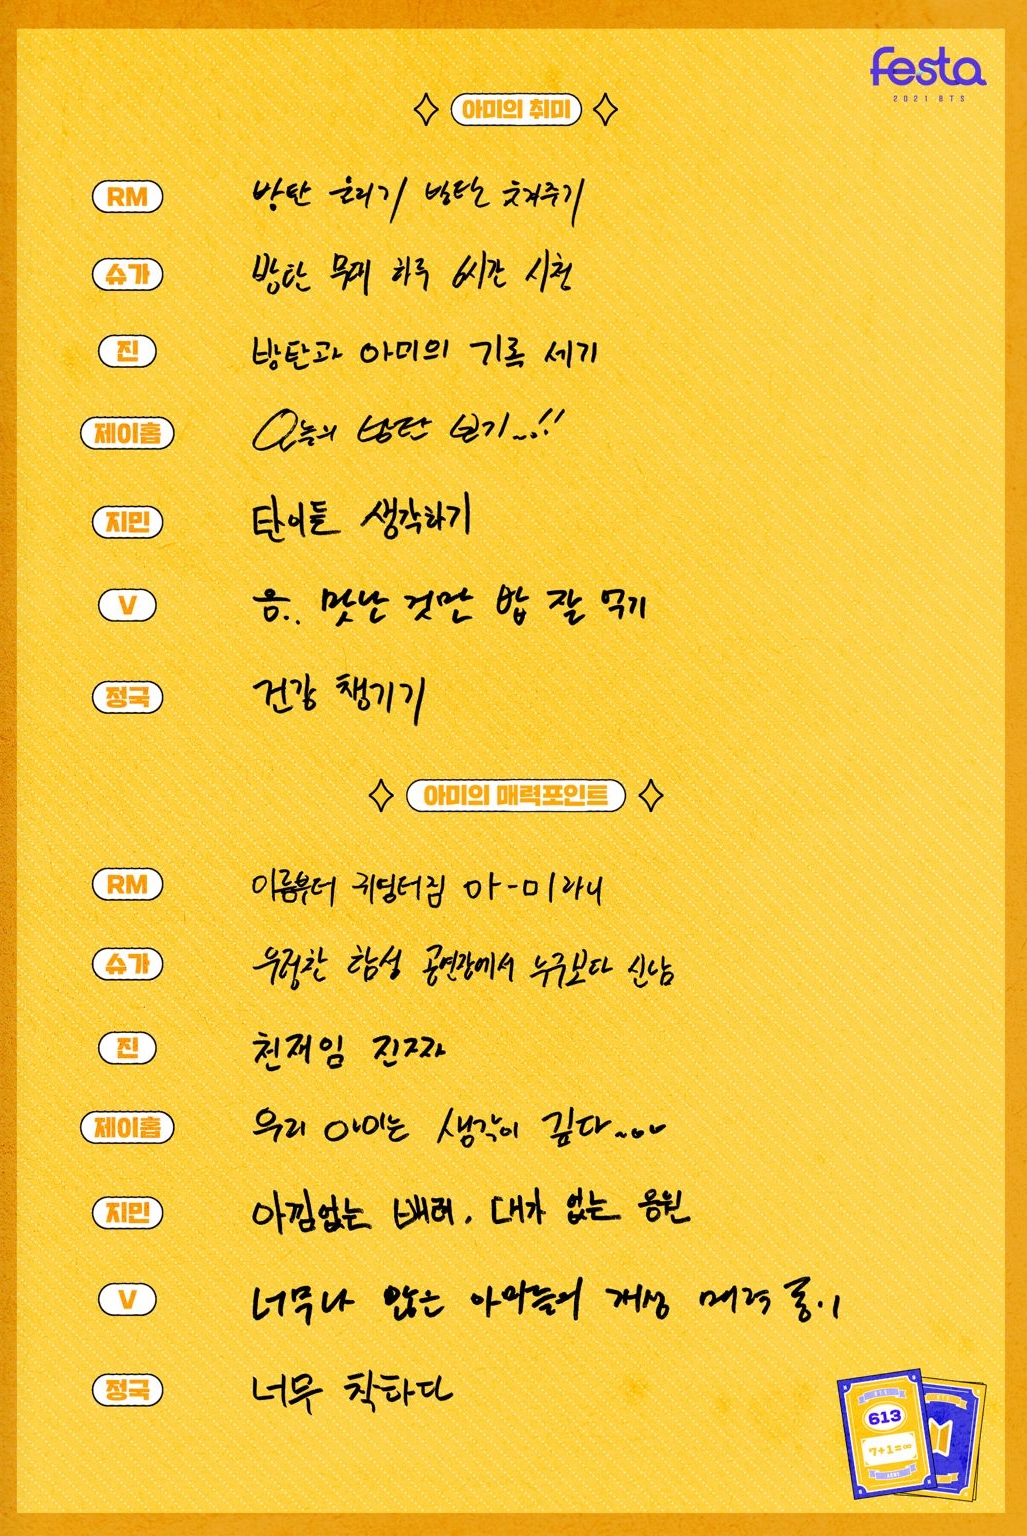 festa
2021 BTS
아미의 취미
RM 방탄 놀리기 방탄 웃겨주기
슈가 방탄 무대 하루 6시간 시청
진 방탄과 아미의 기록 세기
제이홉 오늘의 방탄 보기~..!!
지민 탄이들 생각하기
V 음.. 맛난 것만 밥 잘 먹기
정국 건강 챙기기
아미의 매력포인트
RM 이름부터 귀염터짐 아-미라니
슈가 우렁찬 함성 공연장에서 누구보다 신남
진 천재임 진짜
제이홉 우리 아미는 생각이 깊다~
지민 아낌없는 배려, 대가 없는 응원
V 너무나 많은 아미들의 개성 매력 퐁.!
정국 너무 착하다
613
7+1=∞